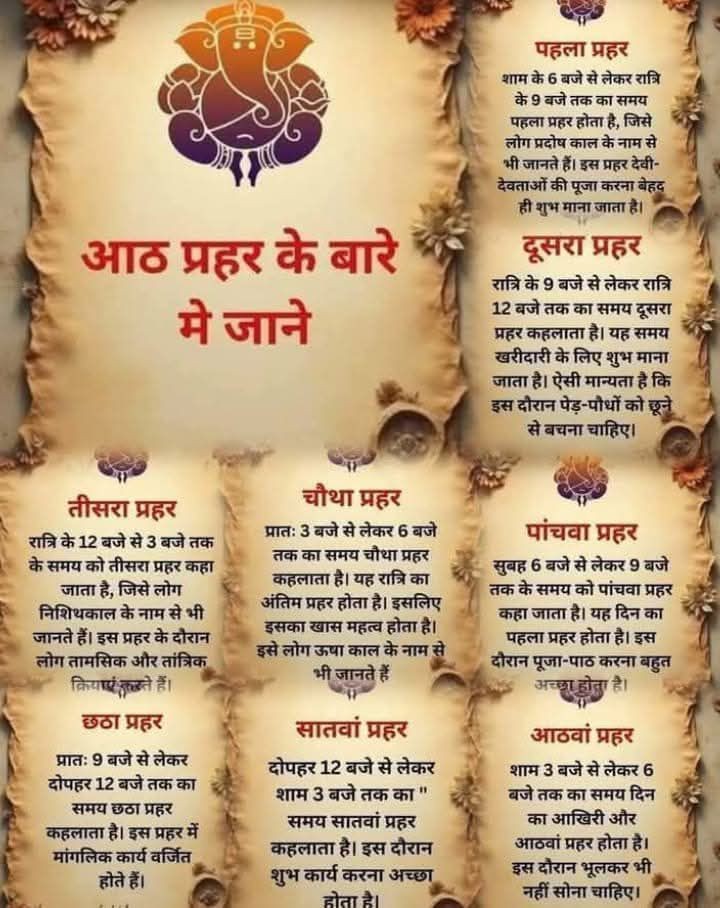 आठ प्रहर के बारे
मे जाने
पहला प्रहर
शाम के 6 बजे से लेकर रात्रि
के 9 बजे तक का समय
पहला प्रहर होता है, जिसे
लोग प्रदोष काल के नाम से
भी जानते हैं। इस प्रहर देवी-
देवताओं की पूजा करना बेहद
ही शुभ माना जाता है।
दूसरा प्रहर
रात्रि के 9 बजे से लेकर रात्रि
12 बजे तक का समय दूसरा
प्रहर कहलाता है। यह समय
खरीदारी के लिए शुभ माना
जाता है। ऐसी मान्यता है कि
इस दौरान पेड़-पौधों को छूने
से बचना चाहिए।
तीसरा प्रहर
रात्रि के 12 बजे से 3 बजे तक
के समय को तीसरा प्रहर कहा
जाता है, जिसे लोग
निशिथकाल के नाम से भी
जानते हैं। इस प्रहर के दौरान
लोग तामसिक और तांत्रिक
क्रियाएं करते हैं।
चौथा प्रहर
प्रातः 3 बजे से लेकर 6 बजे
तक का समय चौथा प्रहर
कहलाता है। यह रात्रि का
अंतिम प्रहर होता है। इसलिए
इसका खास महत्व होता है।
इसे लोग ऊषा काल के नाम से
भी जानते हैं
पांचवा प्रहर
सुबह 6 बजे से लेकर 9 बजे
तक के समय को पांचवा प्रहर
कहा जाता है। यह दिन का
पहला प्रहर होता है। इस
दौरान पूजा-पाठ करना बहुत
अच्छा होता है।
छठा प्रहर
प्रातः 9 बजे से लेकर
दोपहर 12 बजे तक का
समय छठा प्रहर
कहलाता है। इस प्रहर में
मांगलिक कार्य वर्जित
होते हैं।
सातवां प्रहर
दोपहर 12 बजे से लेकर
शाम 3 बजे तक का "
समय सातवां प्रहर
कहलाता है। इस दौरान
शुभ कार्य करना अच्छा
होता है।
आठवां प्रहर
शाम 3 बजे से लेकर 6
बजे तक का समय दिन
का आखिरी और
आठवां प्रहर होता है।
इस दौरान भूलकर भी
नहीं सोना चाहिए।